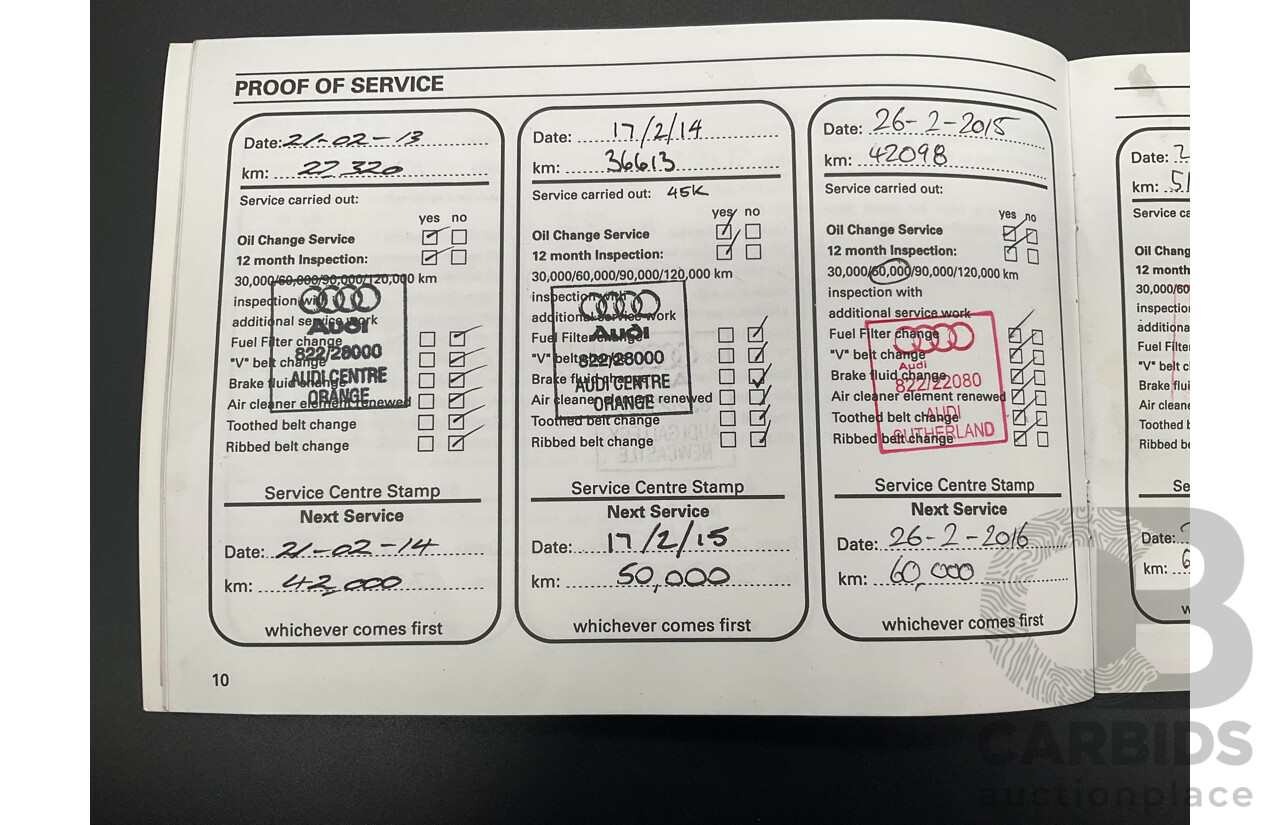 PROOF OF SERVICE
Date: 21-02-13
km: 27320
Service carried out:
yes no
Oil Change Service
12 month Inspection:
30,000/60,000/90,000/120,000 km
inspection with
additional service work
Fuel Filter change
"V" belt change
Brake fluid change
Air cleaner element renewed
Toothed belt change
Ribbed belt change
Audi
822/28000
AUDI CENTRE
ORANGE
Service Centre Stamp
Next Service
Date: 21-02-14
km: 42,000
whichever comes first
10
Date: 17/2/14
km: 36613
Service carried out: 45K
yes no
Oil Change Service
12 month Inspection:
30,000/60,000/90,000/120,000 km
inspection with
additional service work
Fuel Filter change
"V" belt change
Brake fluid change
Air cleaner element renewed
Toothed belt change
Ribbed belt change
Audi
822/28000
AUDI CENTRE
ORANGE
Service Centre Stamp
Next Service
Date: 17/2/15
km: 50,000
whichever comes first
Date: 26-2-2015
km: 42098
Service carried out:
yes no
Oil Change Service
12 month Inspection:
30,000/60,000/90,000/120,000 km
inspection with
additional service work
Fuel Filter change
"V" belt change
Brake fluid change
Air cleaner element renewed
Toothed belt change
Ribbed belt change
Audi
822/22080
AUDI
SUTHERLAND
Service Centre Stamp
Next Service
Date: 26-2-2016
km: 60,000
whichever comes first
Date:
km: 51
Service ca
Oil Chang
12 month
30,000/60
inspection
additiona
Fuel Filter
"V" belt c
Brake flui
Air cleane
Toothed b
Ribbed be
Se
Date:
km: 6
w
CARBIDS
auctionplace